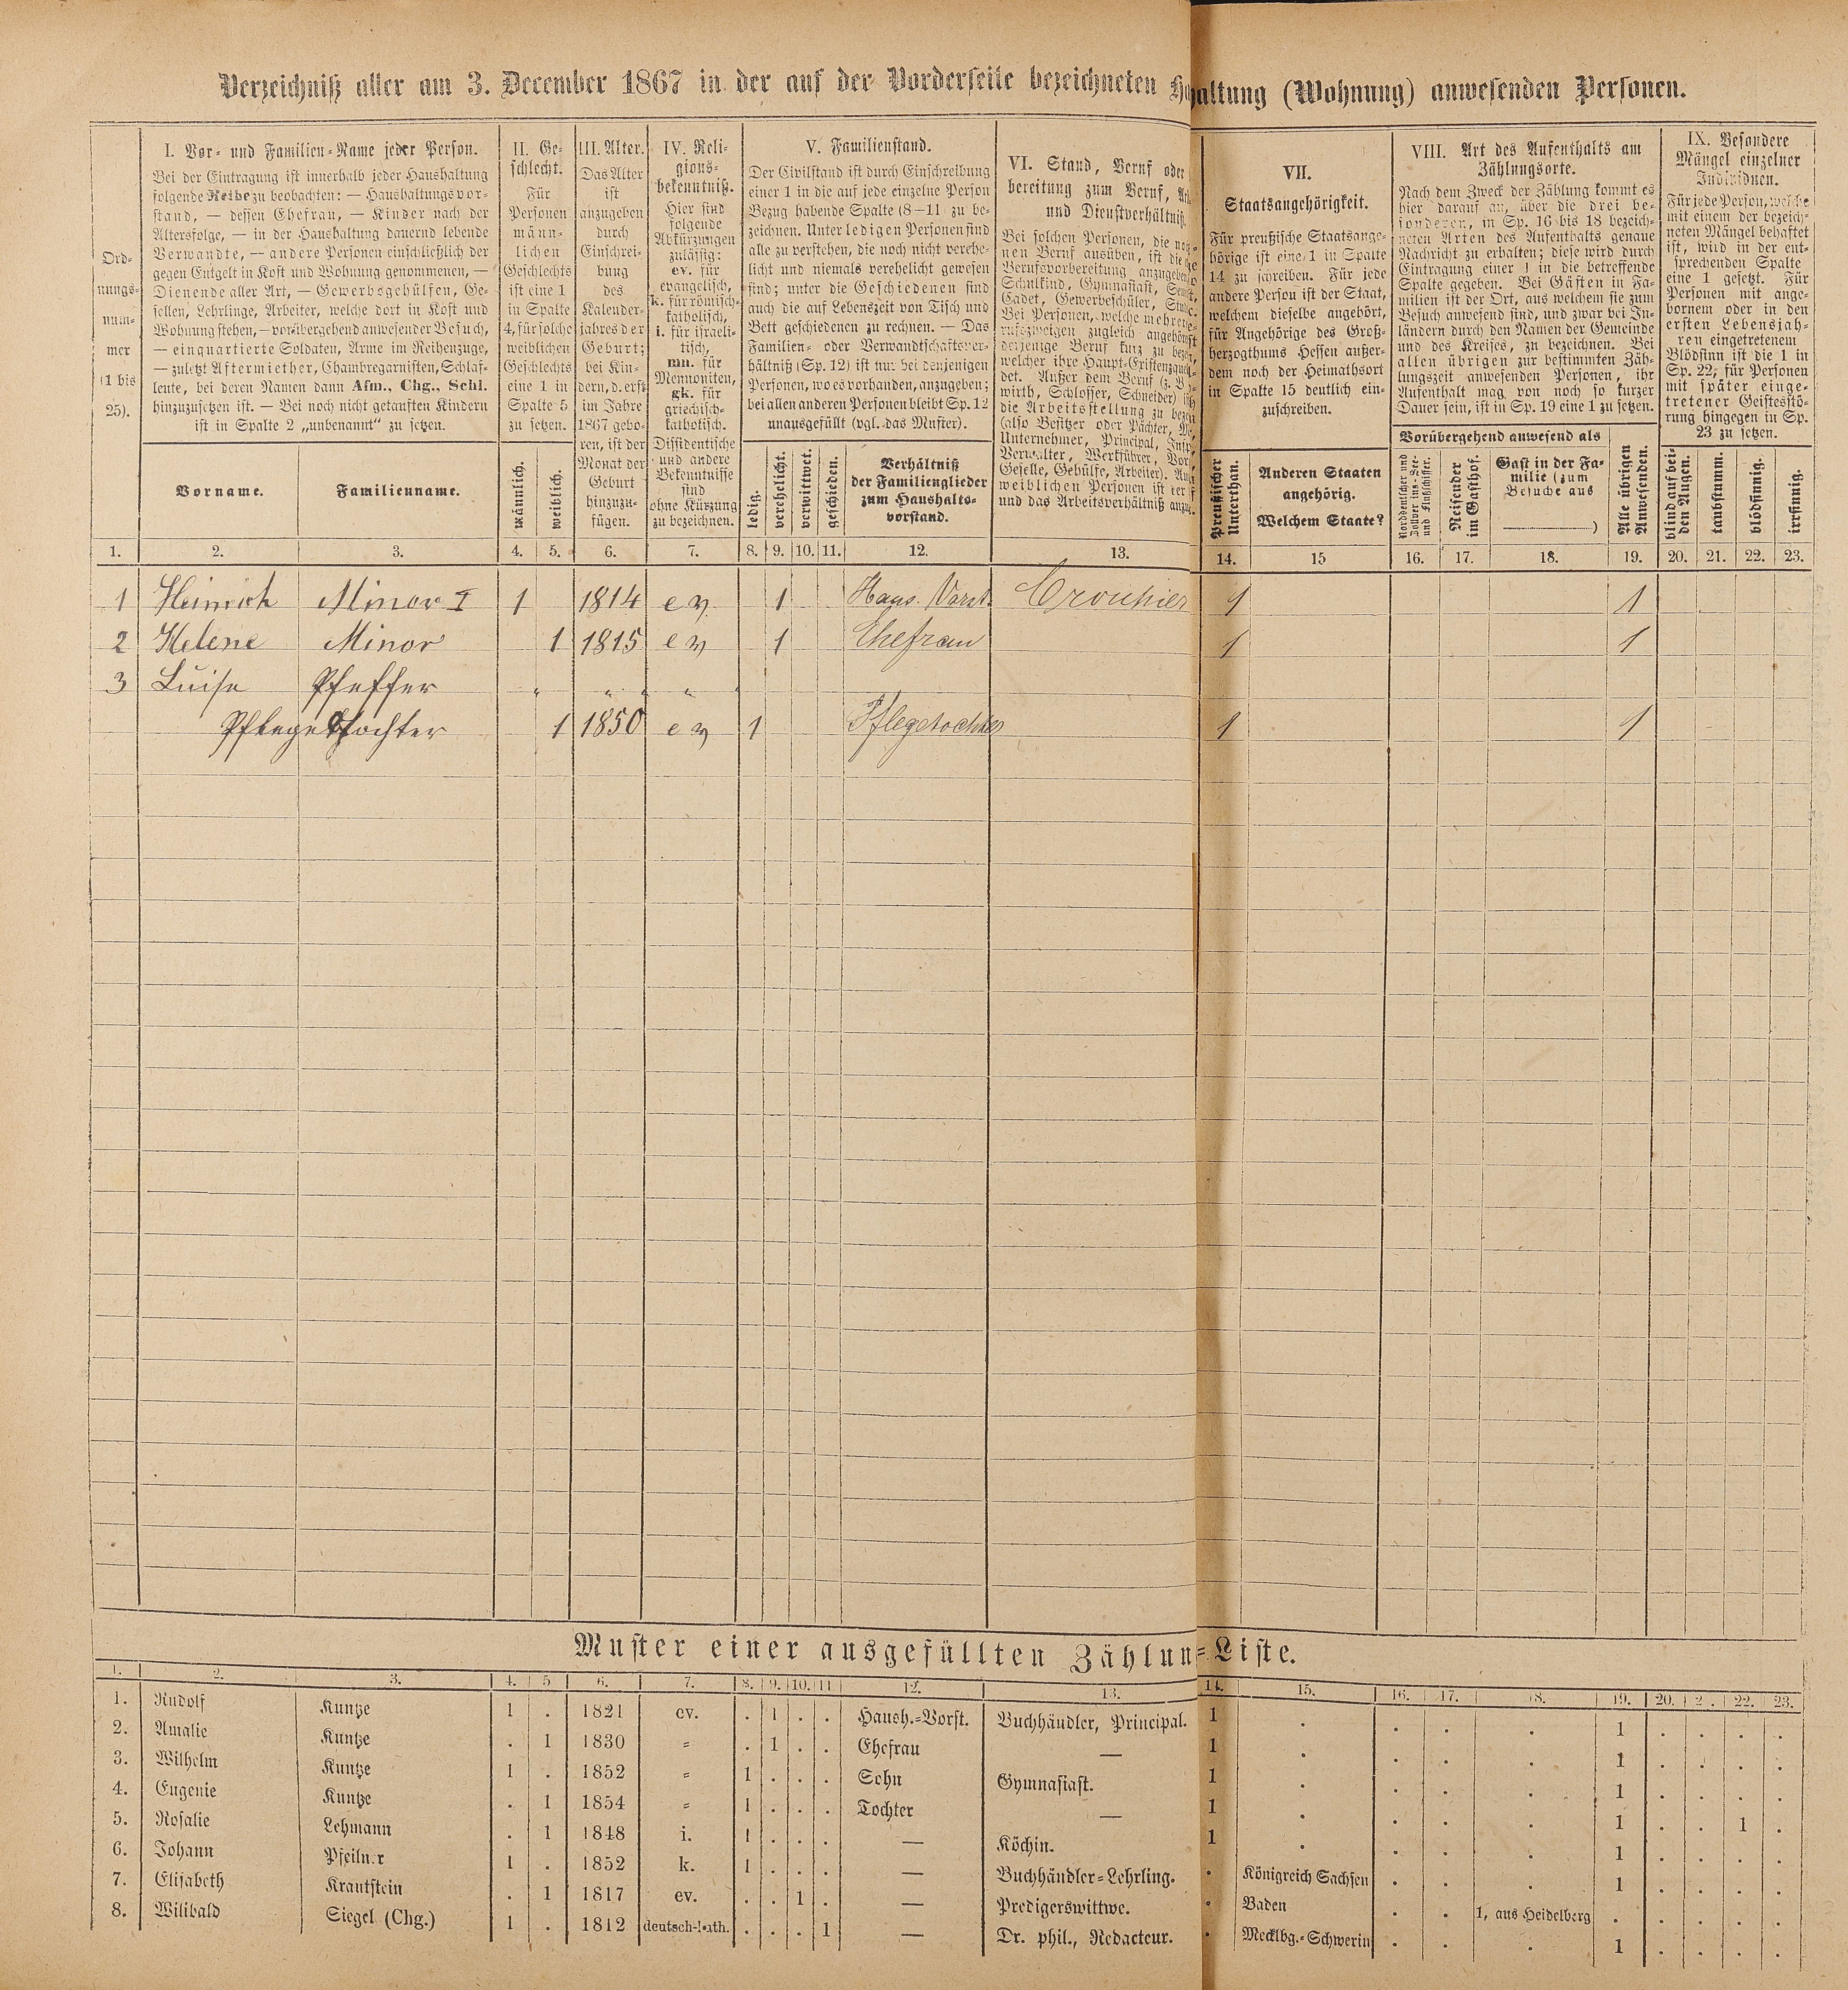 Verzeichniß aller am 3. December 1867 in der auf der Vorderseite bezeichneten Haushaltung (Wohnung) anwesenden Personen.
Ord-
nungs-
num-
mer
(1 bis
25).
I. Vor- und Familien-Name jeder Person.
Bei der Eintragung ist innerhalb jeder Haushaltung
folgende Reihe zu beobachten: — Haushaltungsvor-
stand, — dessen Ehefrau, — Kinder nach der
Altersfolge, — in der Haushaltung dauernd lebende
Verwandte, — andere Personen einschließlich der
gegen Entgelt in Kost und Wohnung genommenen, —
Dienende aller Art, — Gewerbsgehülfen, Ge-
sellen, Lehrlinge, Arbeiter, welche dort in Kost und
Wohnung stehen, — vorübergehend anwesender Besuch,
— einquartierte Soldaten, Arme im Reihenzuge,
— zuletzt Aftermiether, Chambregarnisten, Schlaf-
leute, bei deren Namen dann Afm., Chg., Schl.
hinzuzusetzen ist. — Bei noch nicht getauften Kindern
ist in Spalte 2 „unbenannt“ zu setzen.
Vorname.
Familienname.
II. Ge-
schlecht.
Für
Personen
männ-
lichen
Geschlechts
ist eine 1
in Spalte
4, für solche
weiblichen
Geschlechts
eine 1 in
Spalte 5
zu setzen.
männlich.
weiblich.
III. Alter.
Das Alter
ist
anzugeben
durch
Einschrei-
bung
des
Kalender-
jahres der
Geburt;
bei Kin-
dern, d. erst
im Jahre
1867 gebo-
ren, ist der
Monat der
Geburt
hinzuzu-
fügen.
IV. Reli-
gions-
bekenntniß.
Hier sind
folgende
Abkürzungen
zulässig:
ev. für
evangelisch,
k. für römisch-
katholisch,
i. für israeli-
tisch,
mn. für
Mennoniten,
gk. für
griechisch-
katholisch.
Dissidentische
und andere
Bekenntnisse
sind
ohne Kürzung
zu bezeichnen.
V. Familienstand.
Der Civilstand ist durch Einschreibung
einer 1 in die auf jede einzelne Person
Bezug habende Spalte (8—11) zu be-
zeichnen. Unter ledigen Personen sind
alle zu verstehen, die noch nicht verehe-
licht und niemals verehelicht gewesen
sind; unter die Geschiedenen sind
auch die auf Lebenszeit von Tisch und
Bett geschiedenen zu rechnen. — Das
Familien- oder Verwandtschaftsver-
hältniß (Sp. 12) ist nur bei denjenigen
Personen, wo es vorhanden, anzugeben;
bei allen anderen Personen bleibt Sp. 12
unausgefüllt (vgl. das Muster).
ledig.
verehelicht.
verwittwet.
geschieden.
Verhältniß
der Familienglieder
zum Haushalts-
vorstand.
VI. Stand, Beruf oder
bereitung zum Beruf,
und Dienstverhältniß.
Bei solchen Personen, die
nen Beruf ausüben, ist die
Berufsvorbereitung
Schulkind, Gymnasiast,
Cadet, Gewerbeschüler,
Bei Personen, welche mehreren
rufszweigen zugleich
derjenige Beruf kurz zu
welcher ihre
det. Außer dem Beruf (z. B.
wirth, Schlosser, Schneider)
die Arbeitsstellung zu
(also Besitzer oder Pächter,
Unternehmer, Principal,
Verwalter, Werkführer,
Geselle, Gehülfe, Arbeiter).
weiblichen Personen ist der
und das Arbeitsverhältniß
VII.
Staatsangehörigkeit.
Für preußische Staatsange-
hörige ist eine 1 in Spalte
14 zu schreiben. Für jede
andere Person ist der Staat,
welchem dieselbe angehört,
für Angehörige des Groß-
herzogthums Hessen außer-
dem noch der Heimathsort
in Spalte 15 deutlich ein-
zuschreiben.
Preußischer
Unterthan.
Anderen Staaten
angehörig.
Welchem Staate?
VIII. Art des Aufenthalts am
Zählungsorte.
Nach dem Zweck der Zählung kommt es
hier darauf an, über die drei be-
sonderen, in Sp. 16 bis 18 bezeich-
neten Arten des Aufenthalts genaue
Nachricht zu erhalten; diese wird durch
Eintragung einer 1 in die betreffende
Spalte gegeben. Bei Gästen in Fa-
milien ist der Ort, aus welchem sie zum
Besuch anwesend sind, und zwar bei In-
ländern durch den Namen der Gemeinde
und des Kreises, zu bezeichnen. Bei
allen übrigen zur bestimmten Zäh-
lungszeit anwesenden Personen, ihr
Aufenthalt mag von noch so kurzer
Dauer sein, ist in Sp. 19 eine 1 zu setzen.
Vorübergehend anwesend als
Norddeutscher und
Zollvereins-See-
und Flußschiffer.
Reisender
im Gasthof.
Gast in der Fa-
milie (zum
Besuche aus
)
Alle übrigen
Anwesenden.
IX. Besondere
Mängel einzelner
Individuen.
Für jede Person, welche
mit einem der bezeich-
neten Mängel behaftet
ist, wird in der ent-
sprechenden Spalte
eine 1 gesetzt. Für
Personen mit ange-
bornem oder in den
ersten Lebensjah-
ren eingetretenem
Blödsinn ist die 1 in
Sp. 22, für Personen
mit später einge-
tretener Geistesstö-
rung hingegen in Sp.
23 zu setzen.
blind auf bei-
den Augen.
taubstumm.
blödsinnig.
irrsinnig.
1. 2. 3. 4. 5. 6. 7. 8. 9. 10. 11. 12. 13. 14. 15 16. 17. 18. 19. 20. 21. 22. 23.
1 Heinrich Minor I 1 1814 ev. 1 Haus. Vorst. Crouhier 1 1
2 Helene Minor 1 1815 ev 1 Ehefrau 1 1
3 Luise Pfeffer " " " " "
Pflegetochter 1 1850 ev 1 Pflegetochter 1 1
Muster einer ausgefüllten Zählungs-Liste.
1. 2. 3. 4. 5 6. 7. 8. 9. 10. 11 12. 13. 14. 15. 16. 17. 18. 19. 20. 2. 22. 23.
1. Rudolf Kuntze 1 . 1821 ev. . 1 . . Haush.-Vorst. Buchhändler, Principal. 1 . . . . 1 . . . .
2. Amalie Kuntze . 1 1830 = . 1 . . Ehefrau — 1 . . . . 1 . . . .
3. Wilhelm Kuntze 1 . 1852 = 1 . . . Sohn Gymnasiast. 1 . . . . 1 . . . .
4. Eugenie Kuntze . 1 1854 = 1 . . . Tochter — 1 . . . . 1 . . 1 .
5. Rosalie Lehmann . 1 1848 i. 1 . . . — Köchin. 1 . . . . 1 . . . .
6. Johann Pfeilner 1 . 1852 k. 1 . . . — Buchhändler-Lehrling. . Königreich Sachsen . . . 1 . . . .
7. Elisabeth Krautstein . 1 1817 ev. . . 1 . — Predigerswittwe. . Baden . . 1, aus Heidelberg . . . . .
8. Wilibald Siegel (Chg.) 1 . 1812 deutsch-kath. . . . 1 — Dr. phil., Redacteur. . Mecklbg.-Schwerin . . . 1 . . . .